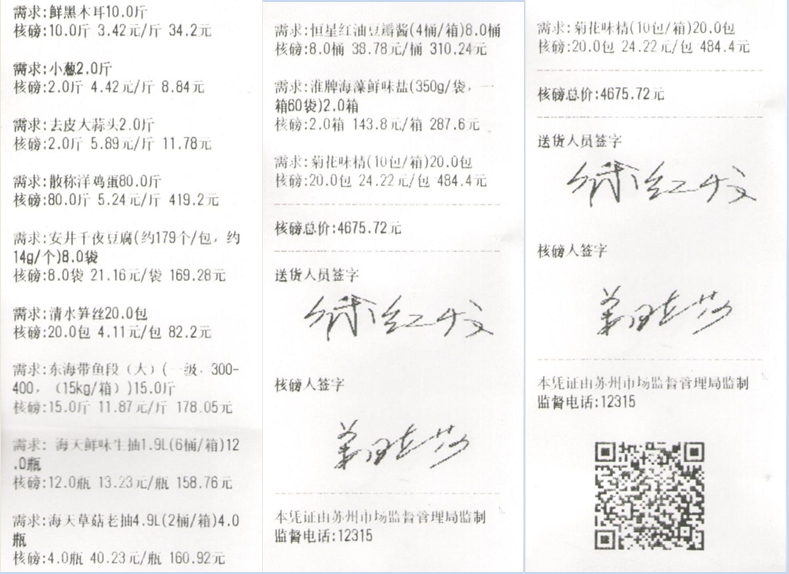 需求:鲜黑木耳10.0斤
核磅:10.0斤 3.42元/斤 34.2元
需求:小葱2.0斤
核磅:2.0斤 4.42元/斤 8.84元
需求:去皮大蒜头2.0斤
核磅:2.0斤 5.89元/斤 11.78元
需求:散称洋鸡蛋80.0斤
核磅:80.0斤 5.24元/斤 419.2元
需求:安井千夜豆腐(约179个/包，约
14g/个)8.0袋
核磅:8.0袋 21.16元/袋 169.28元
需求:清水笋丝20.0包
核磅:20.0包 4.11元/包 82.2元
需求:东海带鱼段（大）(一级，300-
400，（15kg/箱）)15.0斤
核磅:15.0斤 11.87元/斤 178.05元
需求: 海天鲜味生抽1.9L(6桶/箱)12
.0瓶
核磅:12.0瓶 13.23元/瓶 158.76元
需求:海天草菇老抽4.9L(2桶/箱)4.0
瓶
核磅:4.0瓶 40.23元/瓶 160.92元
需求:恒星红油豆瓣酱(4桶/箱)8.0桶
核磅:8.0桶 38.78元/桶 310.24元
需求:淮牌海藻鲜味盐(350g/袋，一
箱60袋)2.0箱
核磅:2.0箱 143.8元/箱 287.6元
需求:菊花味精(10包/箱)20.0包
核磅:20.0包 24.22元/包 484.4元
核磅总价:4675.72元
送货人员签字
核磅人签字
本凭证由苏州市场监督管理局监制
监督电话:12315
需求:菊花味精(10包/箱)20.0包
核磅:20.0包 24.22元/包 484.4元
核磅总价:4675.72元
送货人员签字
核磅人签字
本凭证由苏州市场监督管理局监制
监督电话:12315